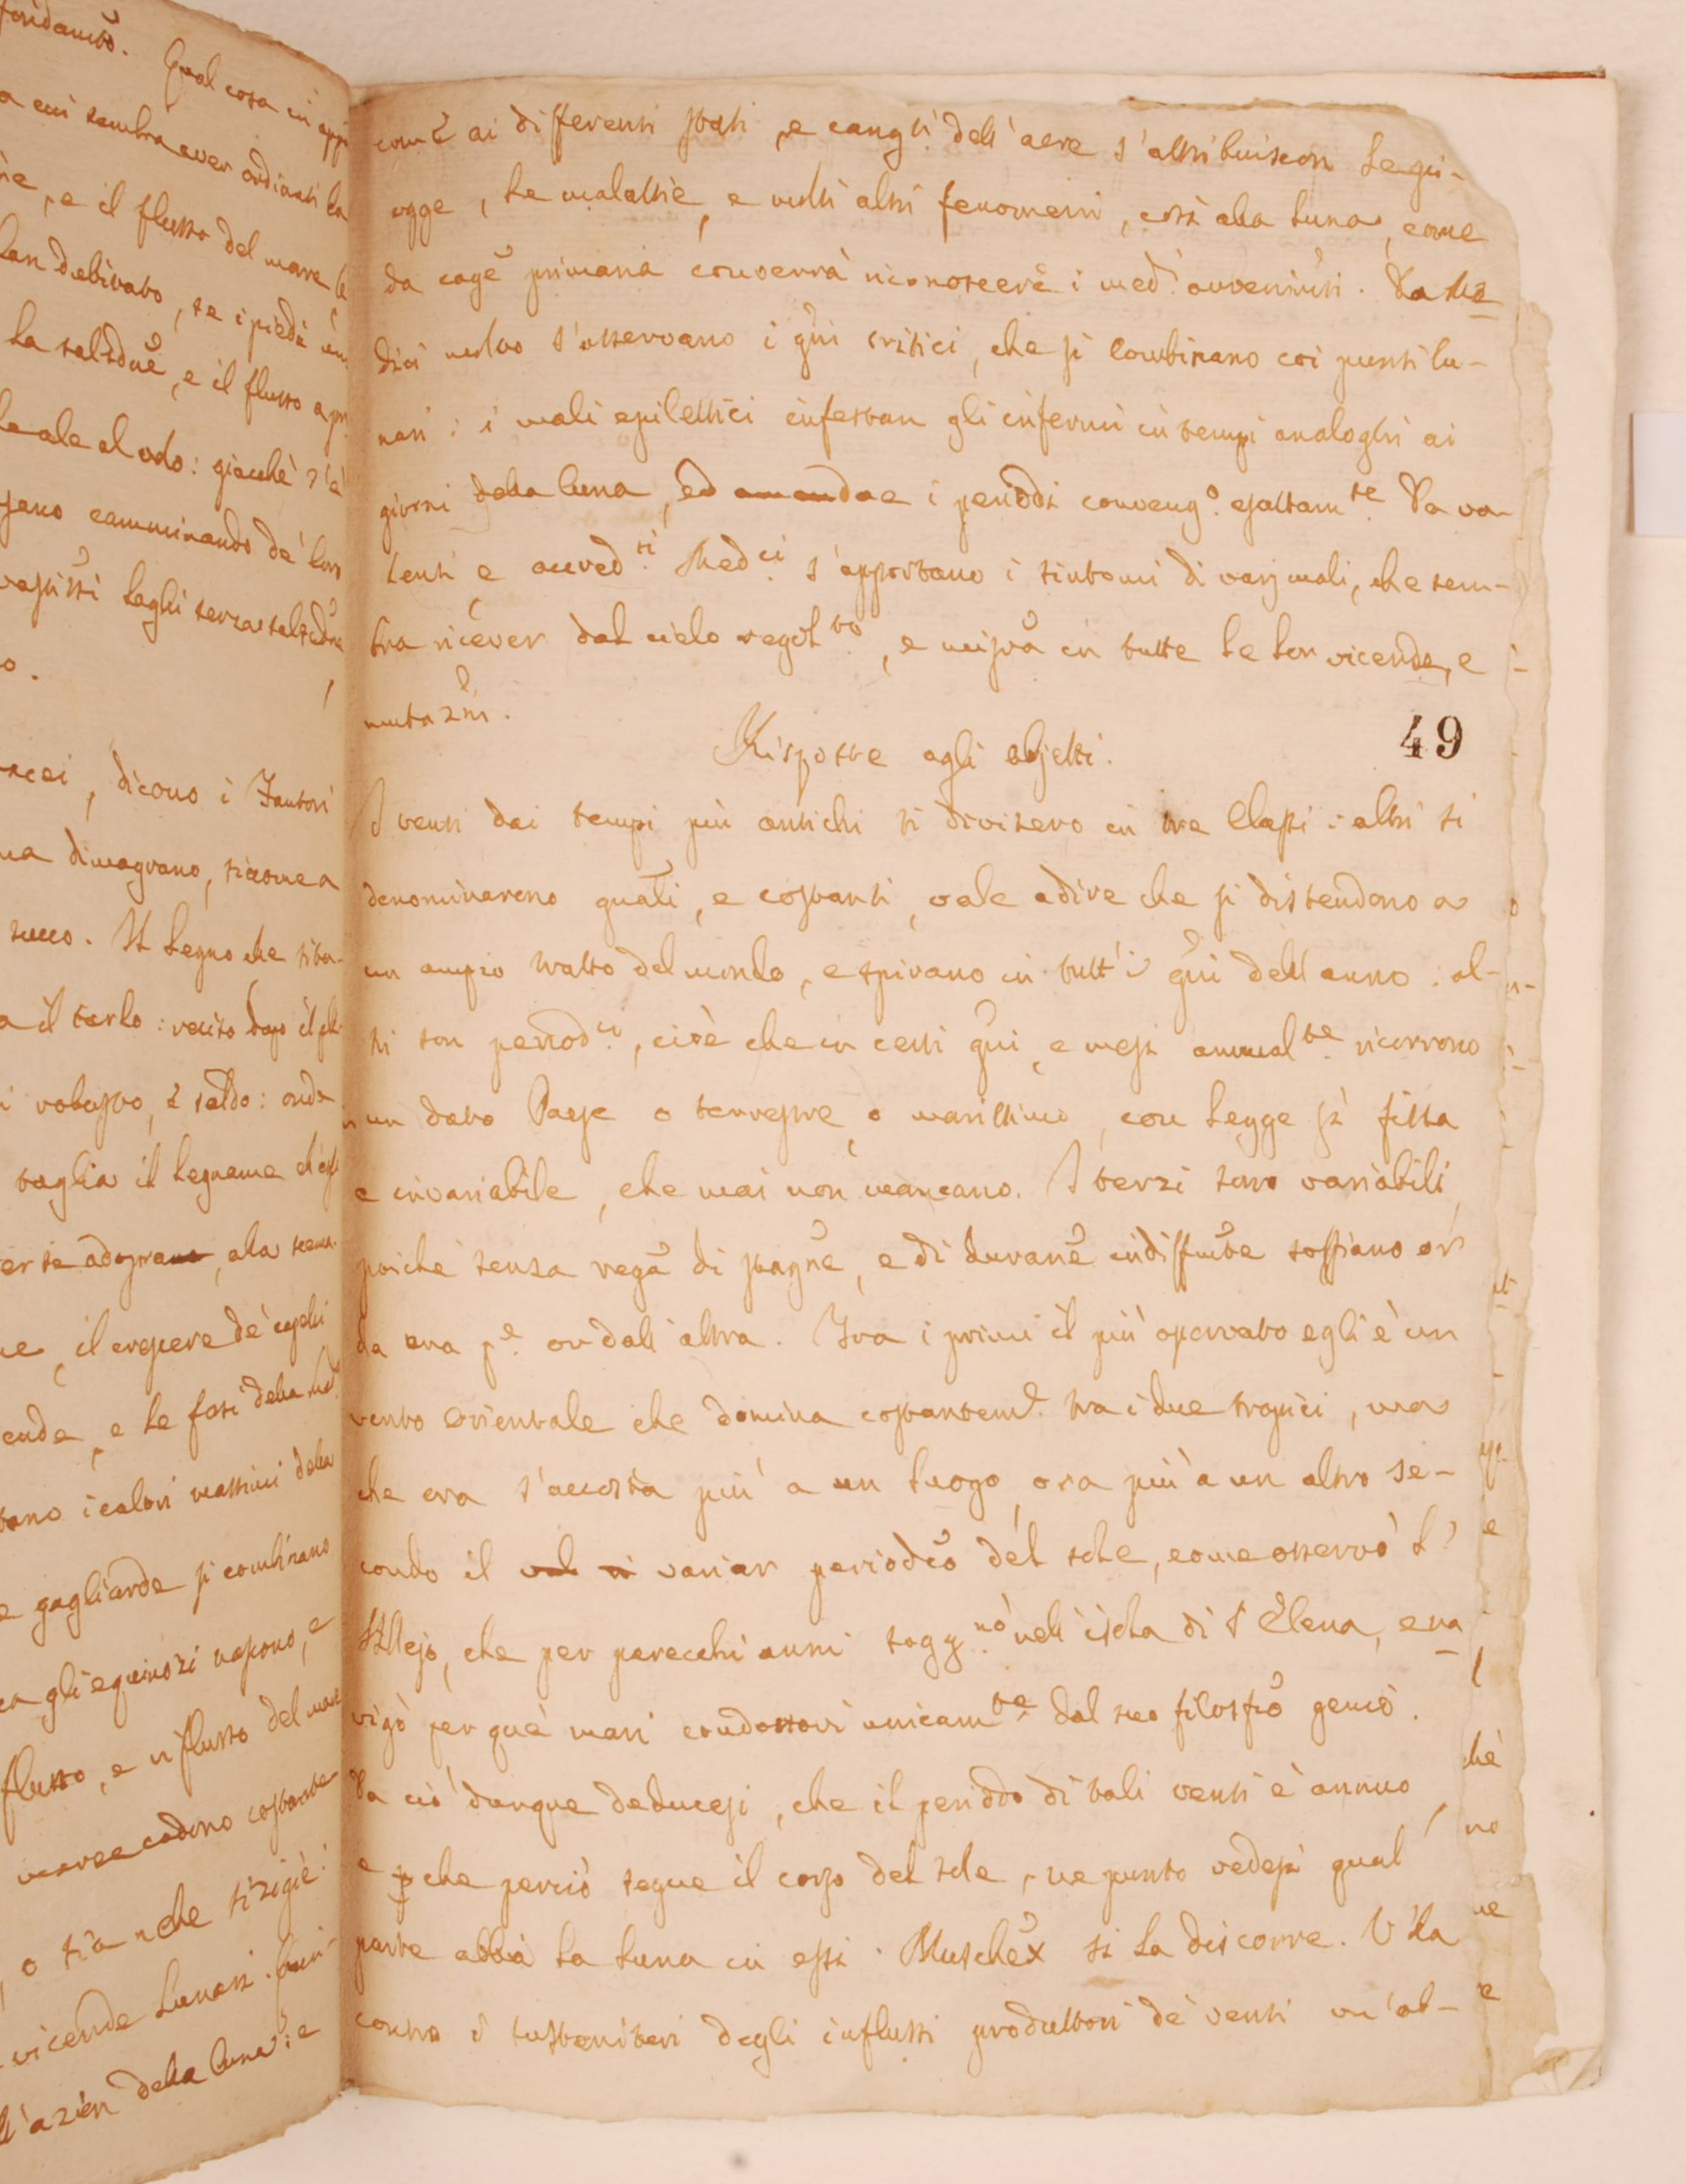 fondamto. Qual cosa in appa
a cui sembra aver ordinati la
ne, e il flusso del mare le
lan dubitato, se i piedi
la salsedne, e il flusso a
leale al odo: giacchè s'è
jano camminando de' loro
vastissi laghi senza salsedne
o.
acei, dicono i Fautori
ma dimagrano, siccome a
succo. Il legno che si ta-
a il tarlo: reciso dopo il pl
i robusto, e saldo: onde
taglia il legname ch'essi
er se adoprano, ala scema
ne, il crescere de' capelli
cende, e le fasi della med
tano i calori massimi dela
e gagliarde si combinano
ca gli equinozi nascono, e
flusso, e riflusso del mare
verse cadono costante
o sia nelle sizigie:
vicende lunari. Quin-
ll'azien dela luna: e
com'è ai differenti stati, e cangti dell'aere s'attribuiscon le pi-
ogge, le malattie, e molti altri fenomeni, così ala luna, come
da cagẽ primaria converrà riconoscere i med. avvenimti. Da Me
dici molto s'osservano i gñi critici, che si combinano coi punti lu-
nari: i mali epilettici infestan gli infermi in tempi analoghi ai
giorni dela luna, ed amendae i periodi conveng.o esattam.te Da va-
lenti e accred.ti Med.ci s'apportano i sintomi di varj mali, che sem-
bra ricever dal cielo regol.to, e misra in tutte le lor vicende, e
mutazñi.
Risposte agli objetti.
49
I venti dai tempi più antichi si divisero in tre classi: altri si
denominareno gñali, e costanti, vale a dire che si distendono a
un ampio tratto del mondo, e spirano in tutt'i gñi dell'anno: al-
tri son period.ci, cioè che in certi gñi, e mesi annual.te ricorrono
in un dato Paese o terrestre, o marittimo, con legge sì fissa
e invariabile, che mai non mancano. I terzi sono variabili,
poichè senza rega di stagñe, e di duranẽ indiffmte soffiano or
da una p.e or dall'altra. Fra i primi il più osservato egli è un
vento orientale che domina costantem.e tra i due tropici, ma
che ora s'accosta più a un luogo, ora più a un altro se-
condo il val ri variar periodco del sole, come osservò l'
Allejo, che per parecchi anni sogg.nò nell'isola di S Elena, e na
vigò per que' mari condottovi unicam.te dal suo filosfco genio.
Da ciò dunque deducesi, che il periodo di tali venti è annuo
e p che perciò segue il corso del sole, ne punto vedesi qual
parte abbia la luna in essi. Muschex si la discorre. V'ha
contro i sustenitori degli influssi produttori de' venti un'al-